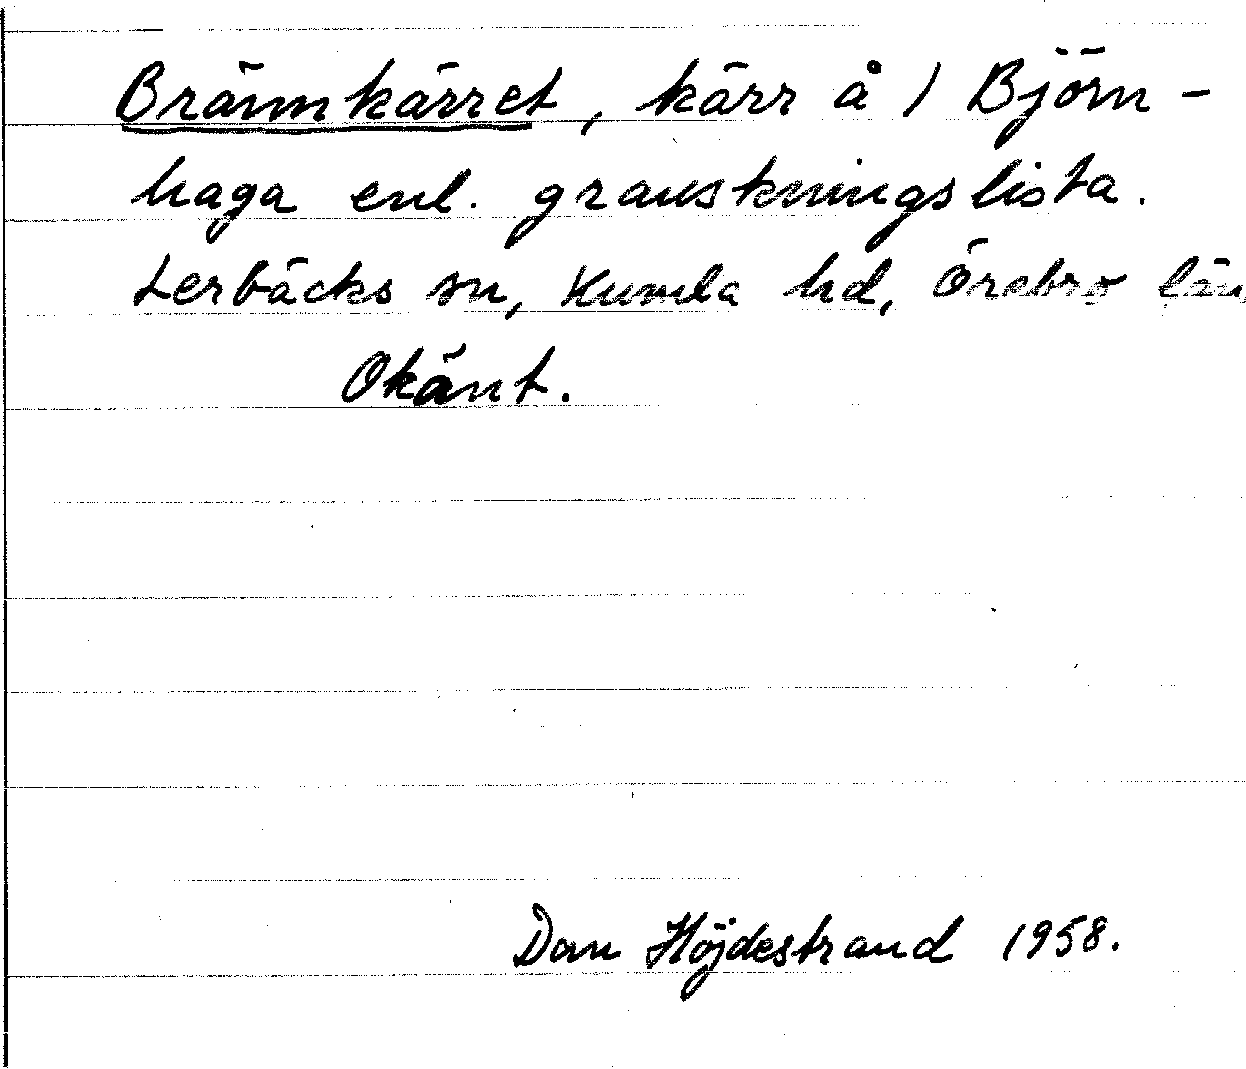 Brännkärret, kärr å 1 Björn-
haga enl. granskningslista.
Lerbäcks sn, Kumla hd, Örebro län,
Okänt.
Dan Höjdestrand 1958.